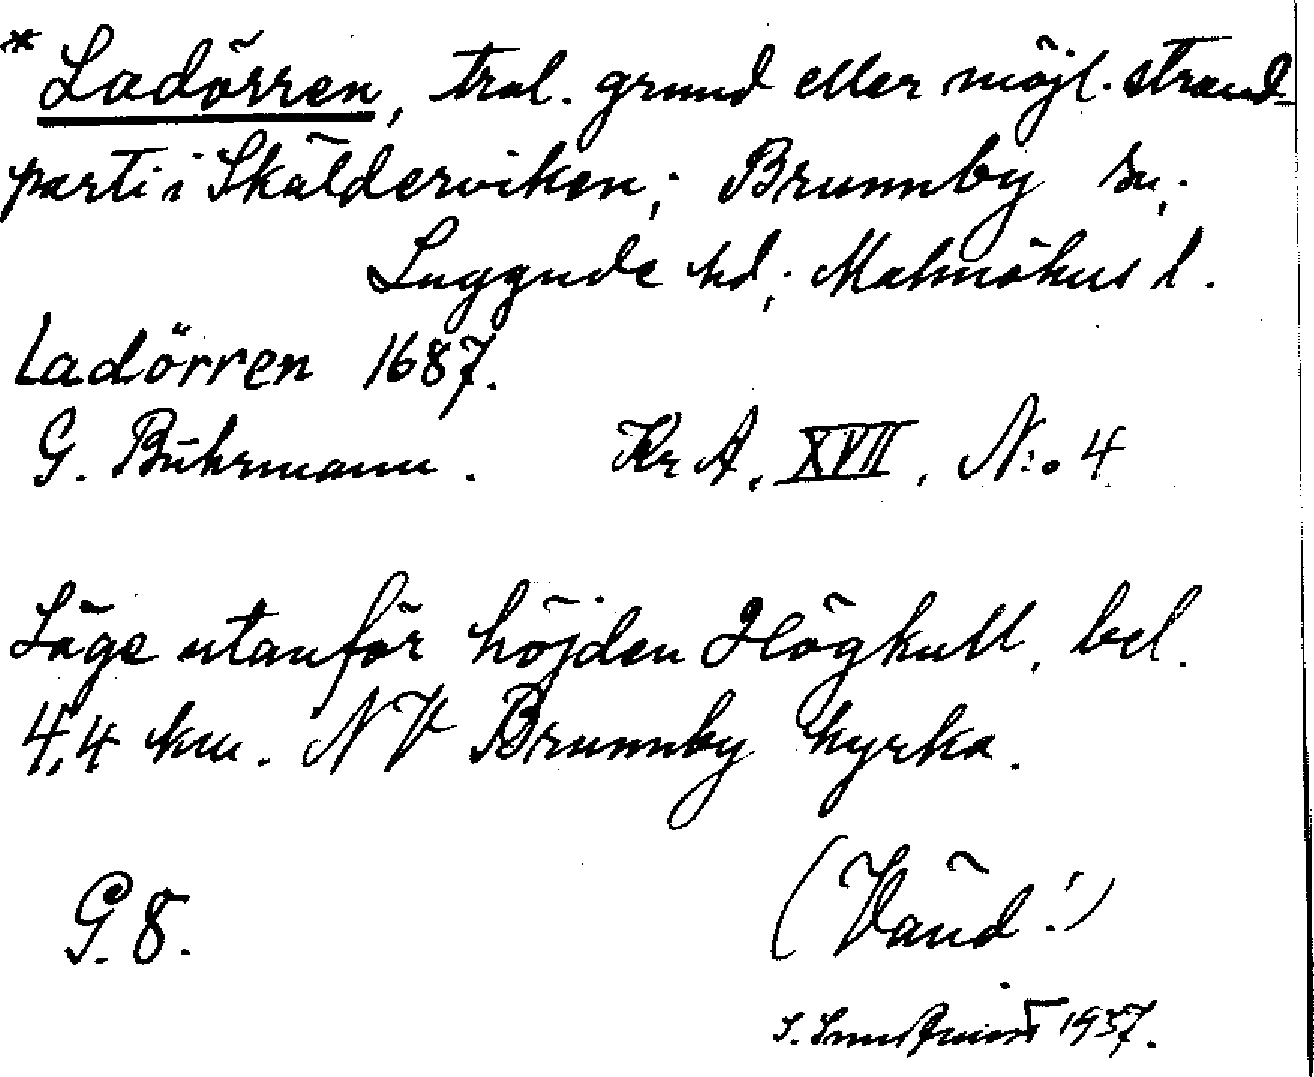 * Ladörren, trol. grund eller möjl. strand-
parti i Skälderviken; Brunnby sn;
Luggude hd; Malmöhus l.
Ladörren 1687.
G. Buhrmann. Kr A, XVII, N:o 4
Läge utanför höjden Högkull, bel.
4,4 km. NV Brunnby kyrka.
G. 8.
(Vänd!)
1937.